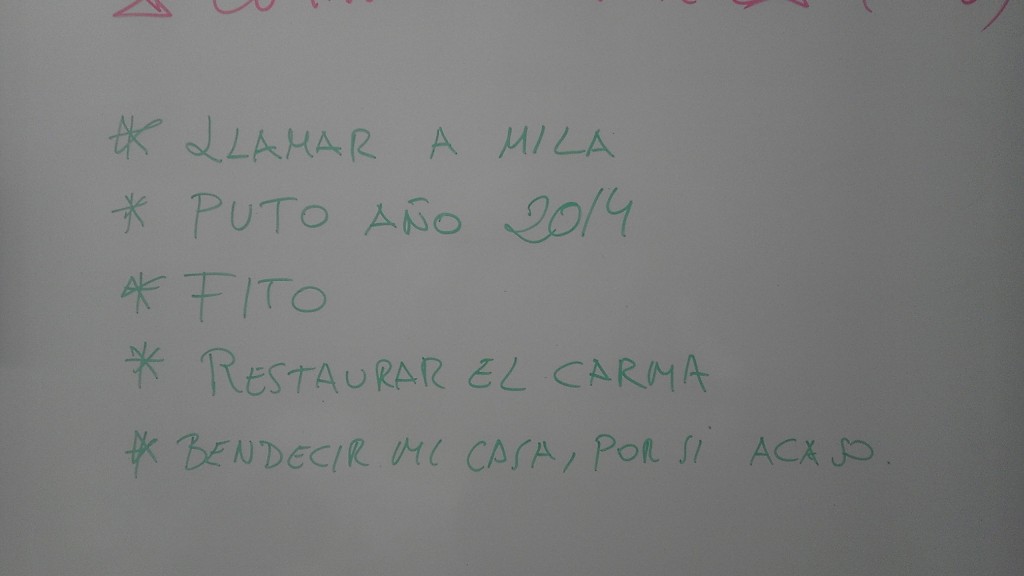 * LLAMAR A MILA
* PUTO AÑO 2014
* FITO
* RESTAURAR EL CARMA
* BENDECIR MI CASA, POR SI ACASO.